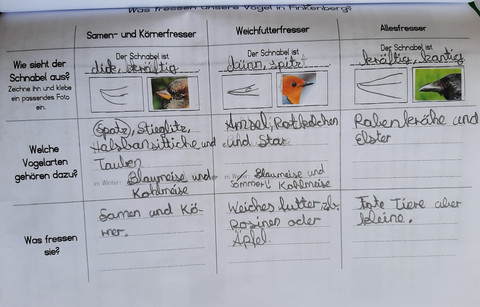 Was fressen unsere Vögel in Finkenberg?
Samen- und Körnerfresser
Weichfutterfresser
Allesfresser
Wie sieht der
Schnabel aus?
Zeichne ihn und klebe
ein passendes Foto
ein.
Der Schnabel ist
dick, kräftig
Der Schnabel ist
dünn, spitz
Der Schnabel ist
kräftig, kantig
Welche
Vogelarten
gehören dazu?
Spatz, Stieglitz,
Halsbansittiche und
Tauben
im Winter: Blaumeise und
Kohlmeise
Amsel, Rotkelchen
und Star
im
Sommer: Blaumeise und
Kohlmeise
Rabenkrähe und
Elster
Was fressen
sie?
Samen und Kö-
rner.
Weiches futter zb.
Rosinen oder
Äpfel.
Tote Tiere aber
kleine.